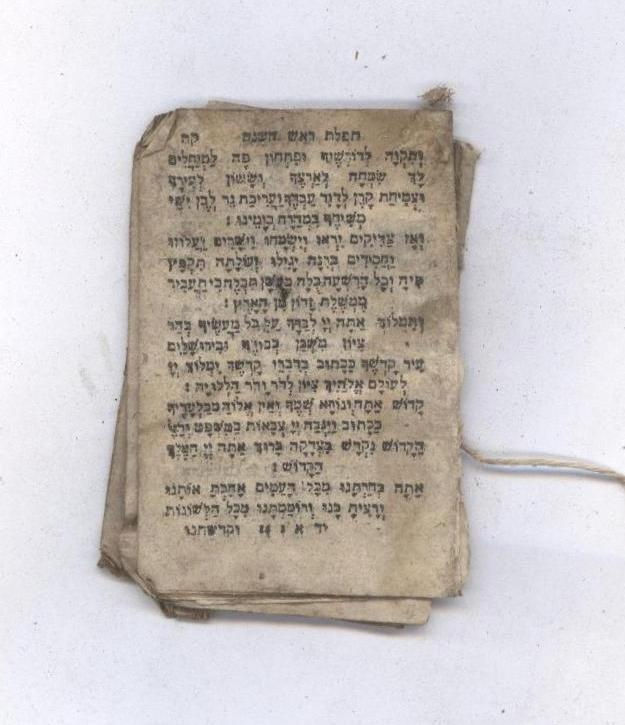 תפלת ראש השנה קה
וְתִקְוָה לְדוֹרְשֶׁיךָ וּפִתְחוֹן פֶּה לַמְיַחֲלִים
לָךְ שִׂמְחָה לְאַרְצֶךָ וְשָׂשׂוֹן לְעִירֶךָ
וּצְמִיחַת קֶרֶן לְדָוִד עַבְדֶּךָ וַעֲרִיכַת נֵר לְבֶן יִשַׁי
מְשִׁיחֶךָ בִּמְהֵרָה בְיָמֵינוּ :
וְאָז צַדִּיקִים יִרְאוּ וְיִשְׂמָחוּ וִישָׁרִים יַעֲלוֹזוּ
וַחֲסִידִים בְּרִנָּה יָגִילוּ וְעוֹלָתָה תִּקְפָּץ
פִּיהָ וְכָל הָרִשְׁעָה כֻלָּהּ כְּעָשָׁן תִּכְלֶה כִּי תַעֲבִיר
מֶמְשֶׁלֶת זָדוֹן מִן הָאָרֶץ :
וְתִמְלוֹךְ אַתָּה יְיָ לְבַדֶּךָ עַל כָּל מַעֲשֶׂיךָ בְּהַר
צִיּוֹן מִשְׁכַּן כְּבוֹדֶךָ וּבִירוּשָׁלַיִם
עִיר קָדְשֶׁךָ כַּכָּתוּב בְּדִבְרֵי קָדְשֶׁךָ יִמְלוֹךְ יְיָ
לְעוֹלָם אֱלֹהַיִךְ צִיּוֹן לְדֹר וָדֹר הַלְלוּיָהּ :
קָדוֹשׁ אַתָּה וְנוֹרָא שְׁמֶךָ וְאֵין אֱלוֹהַּ מִבַּלְעָדֶיךָ
כַּכָּתוּב וַיִּגְבַּהּ יְיָ צְבָאוֹת בַּמִּשְׁפָּט וְהָאֵל
הַקָּדוֹשׁ נִקְדַּשׁ בִּצְדָקָה בָּרוּךְ אַתָּה יְיָ הַמֶּלֶךְ
הַקָּדוֹשׁ :
אַתָּה בְחַרְתָּנוּ מִכָּל הָעַמִּים אָהַבְתָּ אוֹתָנוּ
וְרָצִיתָ בָּנוּ וְרוֹמַמְתָּנוּ מִכָּל הַלְּשׁוֹנוֹת
יד א וקדשתנו